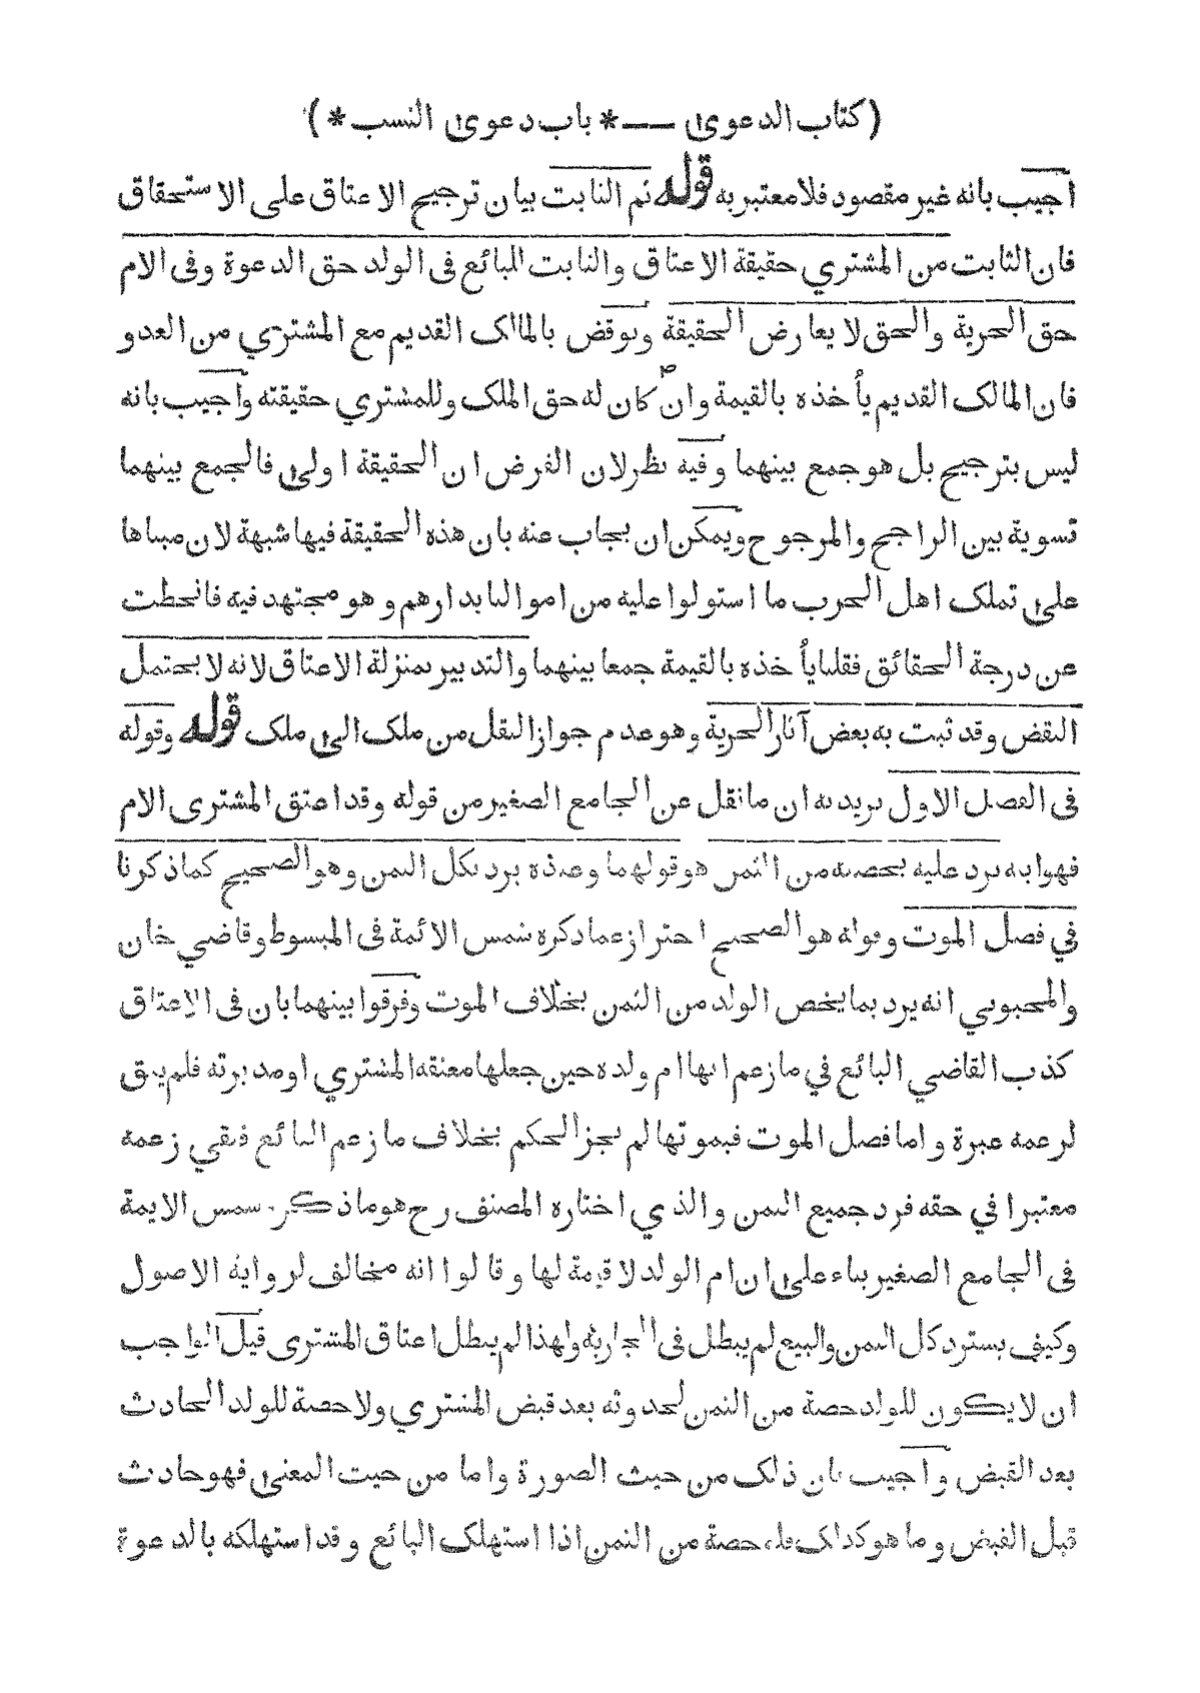 (كتاب الدعوى —— * باب دعوى النسب *)
اجيب بانه غير مقصود فلا معتبر به قوله ثم الثابت بيان ترجيح الاعتاق على الاستحقاق
فان الثابت من المشتري حقيقة الاعتاق والثابت للبائع فى الولد حق الدعوة وفى الام
حق الحرية والحق لا يعارض الحقيقة ونوقض بالمالك القديم مع المشتري من العدو
فان المالك القديم يأخذه بالقيمة وان كان له حق الملك وللمشتري حقيقته واجيب بانه
ليس بترجيح بل هو جمع بينهما وفيه نظر لان الفرض ان الحقيقة اولى فالجمع بينهما
تسوية بين الراجح والمرجوح ويمكن ان يجاب عنه بان هذه الحقيقة فيها شبهة لان مبناها
على تملك اهل الحرب ما استولوا عليه من اموالنا بدارهم وهو مجتهد فيه فانحطت
عن درجة الحقائق فقلنا يأخذه بالقيمة جمعا بينهما والتدبير بمنزلة الاعتاق لانه لا يحتمل
النقض وقد ثبت به بعض آثار الحرية وهو عدم جواز النقل من ملك الى ملك قوله وقوله
فى الفصل الاول يريد به ان ما نقل عن الجامع الصغير من قوله وقد اعتق المشترى الام
فهو ابنه يرد عليه بحصته من الثمن هو قولهما وعنده يرد بكل الثمن وهو الصحيح كما ذكرنا
في فصل الموت وقوله هو الصحيح احتراز عما ذكره شمس الائمة فى المبسوط وقاضي خان
والمحبوبي انه يرد بما يخص الولد من الثمن بخلاف الموت وفرقوا بينهما بان فى الاعتاق
كذب القاضي البائع في ما زعم انها ام ولده حين جعلها معتقه المشتري او مدبرته فلم يبق
لزعمه عبرة واما فصل الموت فبموتها لم يجز الحكم بخلاف ما زعم البائع فبقي زعمه
معتبرا في حقه فرد جميع الثمن والذي اختاره المصنف رح هو ما ذكر شمس الايمة
فى الجامع الصغير بناء على ان ام الولد لا قيمة لها وقالوا انه مخالف لرواية الاصول
وكيف يسترد كل الثمن والبيع لم يبطل فى الجارية ولهذا لم يبطل اعتاق المشترى قيل الواجب
ان لا يكون للولد حصة من الثمن لحدوثه بعد قبض المشتري ولا حصة للولد الحادث
بعد القبض واجيب بان ذلك من حيث الصورة واما من حيث المعنى فهو حادث
قبل القبض وما هو كذلك فله حصة من الثمن اذا استهلك البائع وقد استهلكه بالدعوة